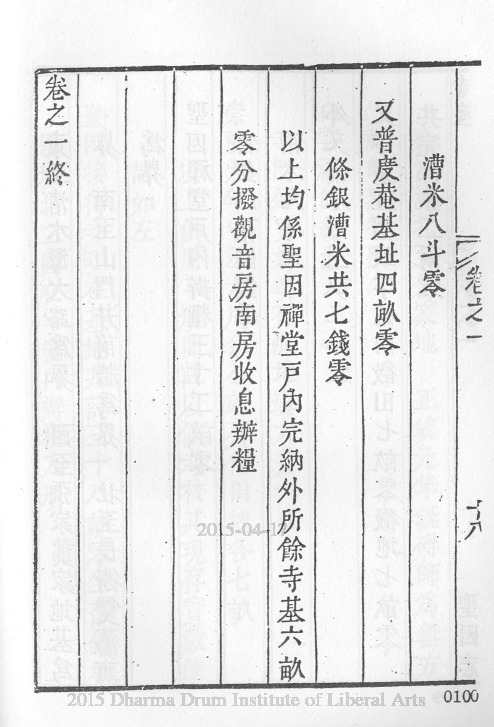 卷之一
十八
漕米八斗零
又普度菴基址四畝零
條銀漕米共七錢零
以上均係聖因禪堂戸內完納外所餘寺基六畝
零分撥觀音房南房收息辦糧
卷之一終
2015-04-17
2015 Dharma Drum Institute of Liberal Arts
0100